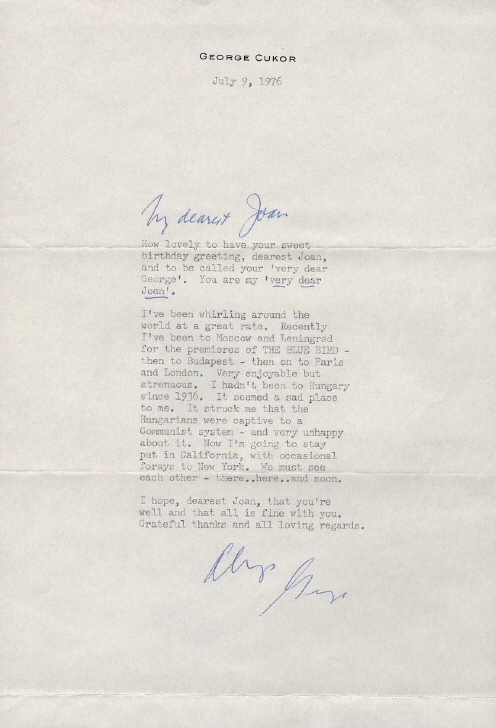 GEORGE CUKOR
July 9, 1976
My dearest Joan
How lovely to have your sweet
birthday greeting, dearest Joan,
and to be called your 'very dear
George'. You are my 'very dear
Joan'.
I've been whirling around the
world at a great rate. Recently
I've been to Moscow and Leningrad
for the premieres of THE BLUE BIRD -
then to Budapest - then on to Paris
and London. Very enjoyable but
strenuous. I hadn't been to Hungary
since 1936. It seemed a sad place
to me. It struck me that the
Hungarians were captive to a
Communist system - and very unhappy
about it. Now I'm going to stay
put in California, with occasional
forays to New York. We must see
each other - there..here..and soon.
I hope, dearest Joan, that you're
well and that all is fine with you.
Grateful thanks and all loving regards.
Always
George